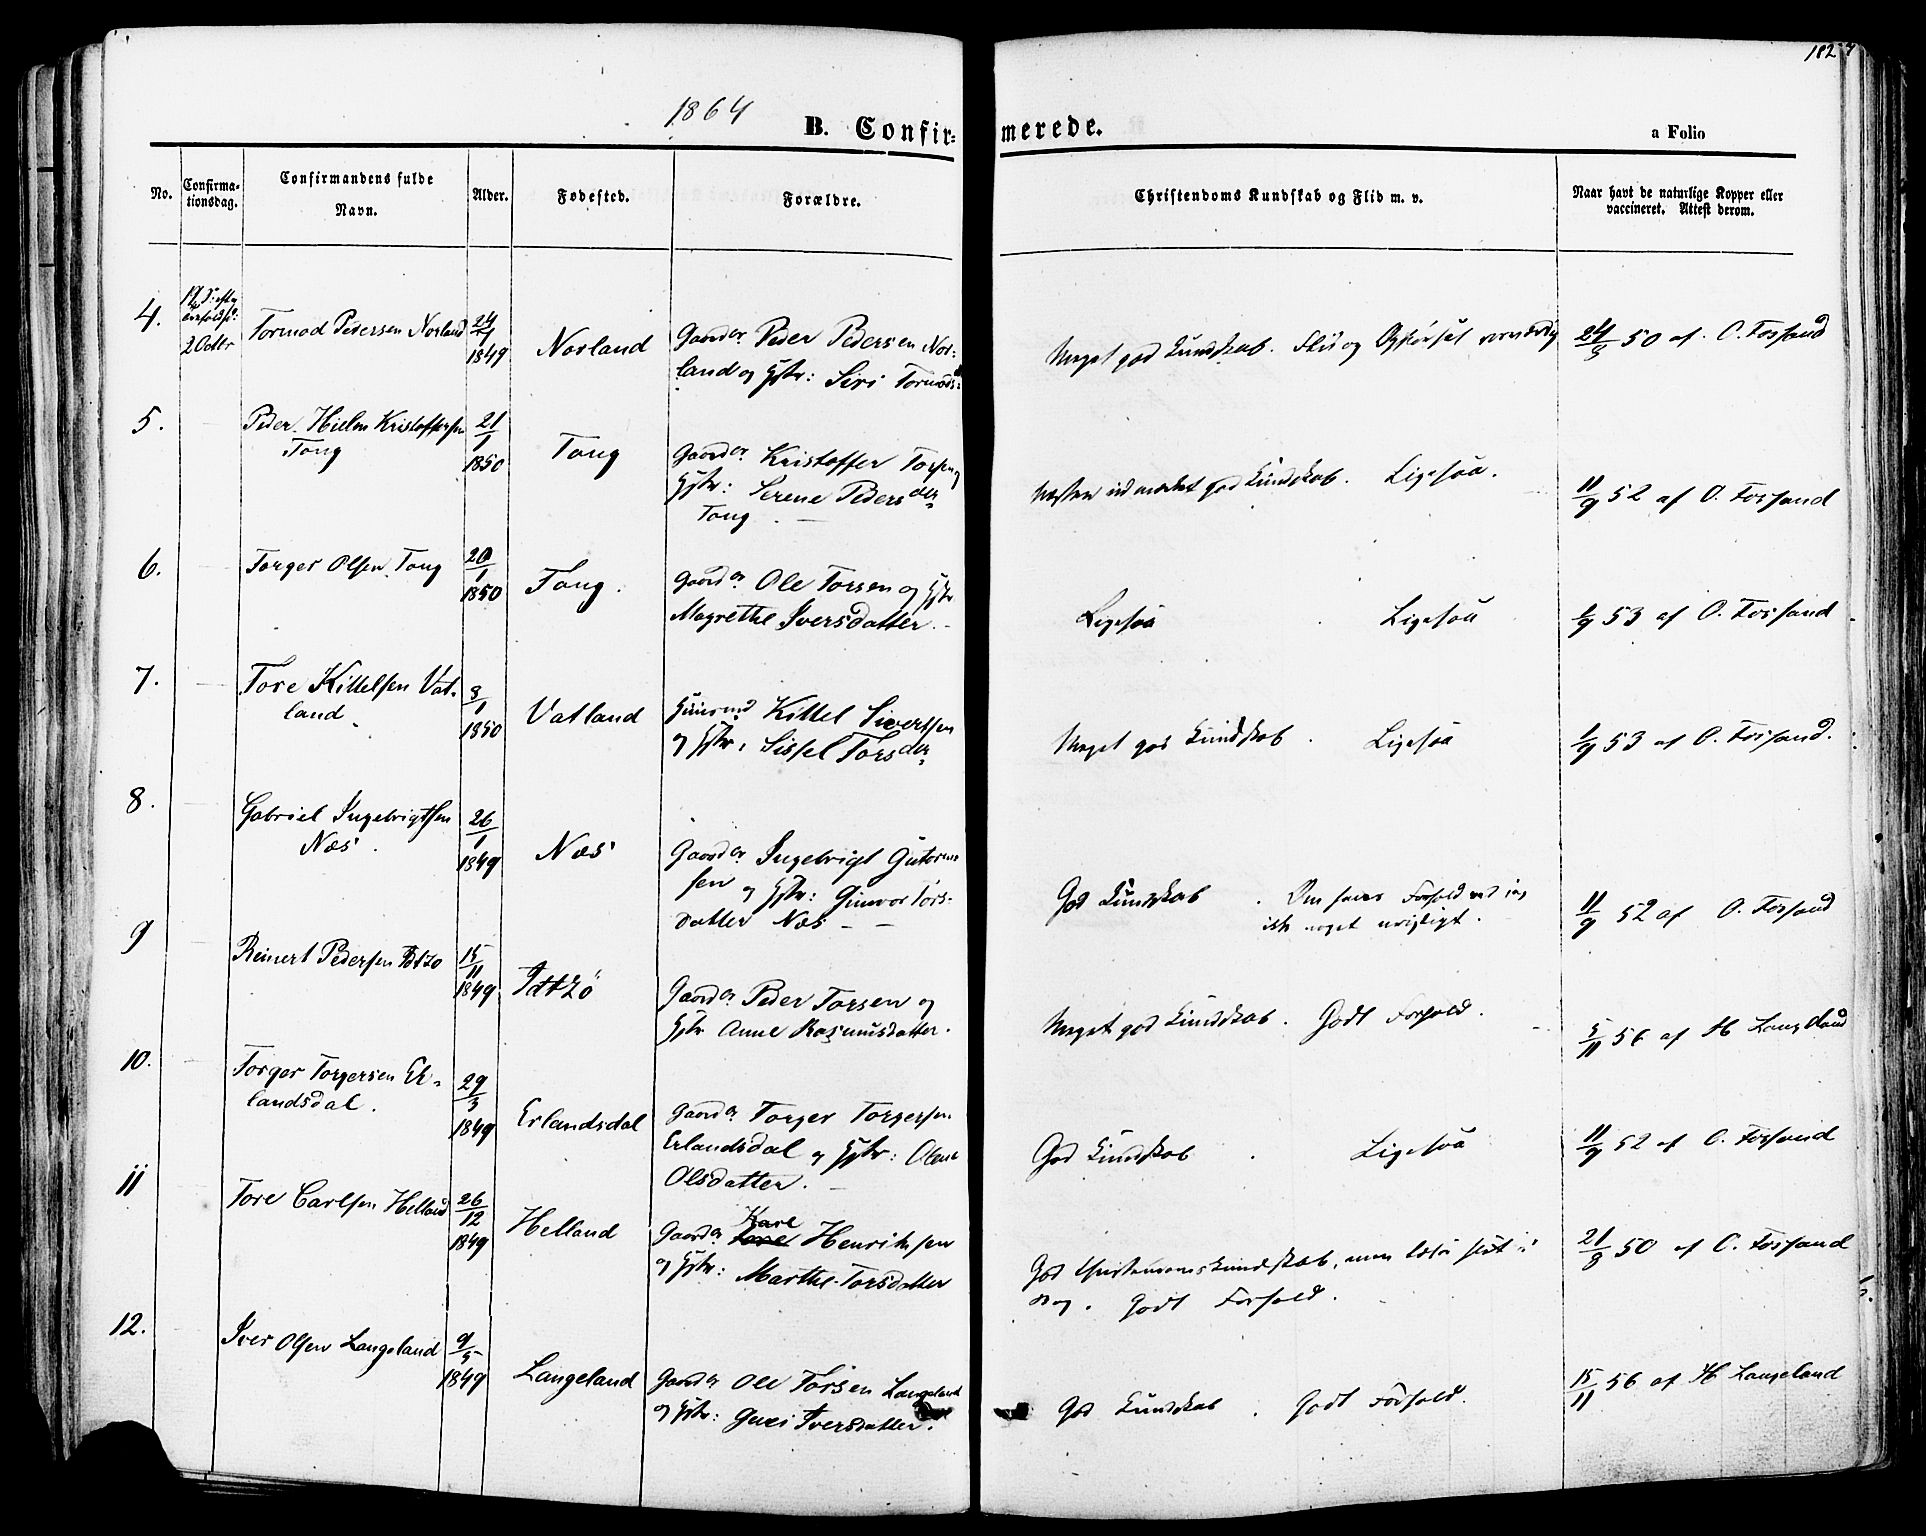 182
1864
B. Confir-
merede.
a Folio
No.
Confirma-
tionsdag.
Confirmandens fulde
Navn.
Alder.
Fødested.
Forældre.
Christendoms Kundskab og Flid m. v.
Naar havt de naturlige Kopper eller
vaccineret. Attest derom.
4.
2 Octbr
Tormod Pedersen Norland
24/4 1849
Norland
Gaardm. Peder Pedersen Nor-
land og Hstr: Siri Tormods
Meget god Kundskab. Flid og Opførsel
24/3 50 af O. Fossand
5.
Peder Hielm Kristoffersen
Tong
21/1 1850
Tong
Gaardm. Kristoffer Torsen og
Hstr: Serene Pedersdtr
Tong
Næsten udmærket god Kundskab. Ligesaa.
11/9 52 af O. Fossand
6.
Torger Olsen Tong
20/1 1850
Tong.
Gaardm. Ole Torsen og Hstr
Magrethe Iversdatter.
Ligesaa Ligesaa
1/9 53 af O. Fossand
7.
Tore Kittelsen Vat-
land
3/1 1850
Vatland
Huusmd Kittel Sivertsen
og Hstr. Sissel Torsdtr
Meget god Kundskab. Ligesaa
1/9 53 af O. Fossand.
8.
Gabriel Ingebrigtsen
Næs.
26/1 1849
Næs
Gaardm. Ingebrigt Gutorm-
sen og Hstr: Gunvor Tors-
datter Næs
God Kundskab. Om hans Forhold ved jeg
ikke noget
11/9 52 af O. Fossand
9
Reinert Pedersen
15/11 1849
Gaardm. Peder Torsen og
Hstr Anne Rasmusdatter.
Meget god Kundskab. Godt Forhold.
5/11 56 af H Langeland
10.
Torger Torgersen Er-
landsdal.
29/3 1849
Erlandsdal
Gaardm. Torger Torgersen
Erlandsdal og Hstr: Olene
Olsdatter.
God Kundskab. Ligesaa
11/9 52 af O. Fossand
11
Tore Carlsen Helland
26/12 1849
Helland
Karl
Gaardm. Tore Henriksen
og Hstr: Marthe Torsdatter
God Christendomskundskab, men læser
Godt Forhold.
21/3 50 af O. Fossand
12.
Iver Olsen Langeland
9/5 1849
Langeland
Gaardm. Ole Torsen Langeland
og Hstr: Guri Iversdatter.
God Kundskab. Godt Forhold.
15/11 56 af H Langeland